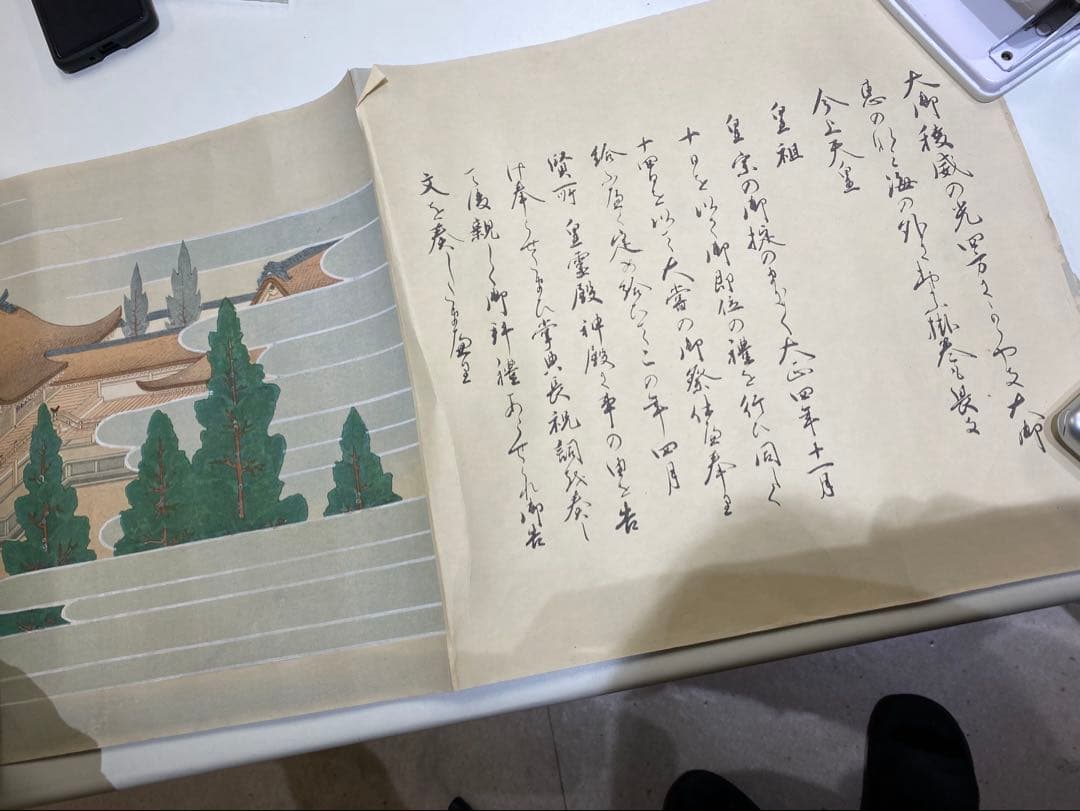 大御稜威の光四方にかゝやき大御
恵の化海の外にあふ掛巻も畏き
今上天皇
皇祖
皇宗の御掟のまにまに大正四年十一月
十日を以て御即位の禮を行ひ同しく
十四日を以て大嘗の御祭仕奉
給ふ 定め給ひてこの年四月
賢所 皇霊殿 神殿に事の由を告
け奉らせたまひ掌典長祝詞を奏し
て後親しく御拝禮あらせられ御告
文を奏し